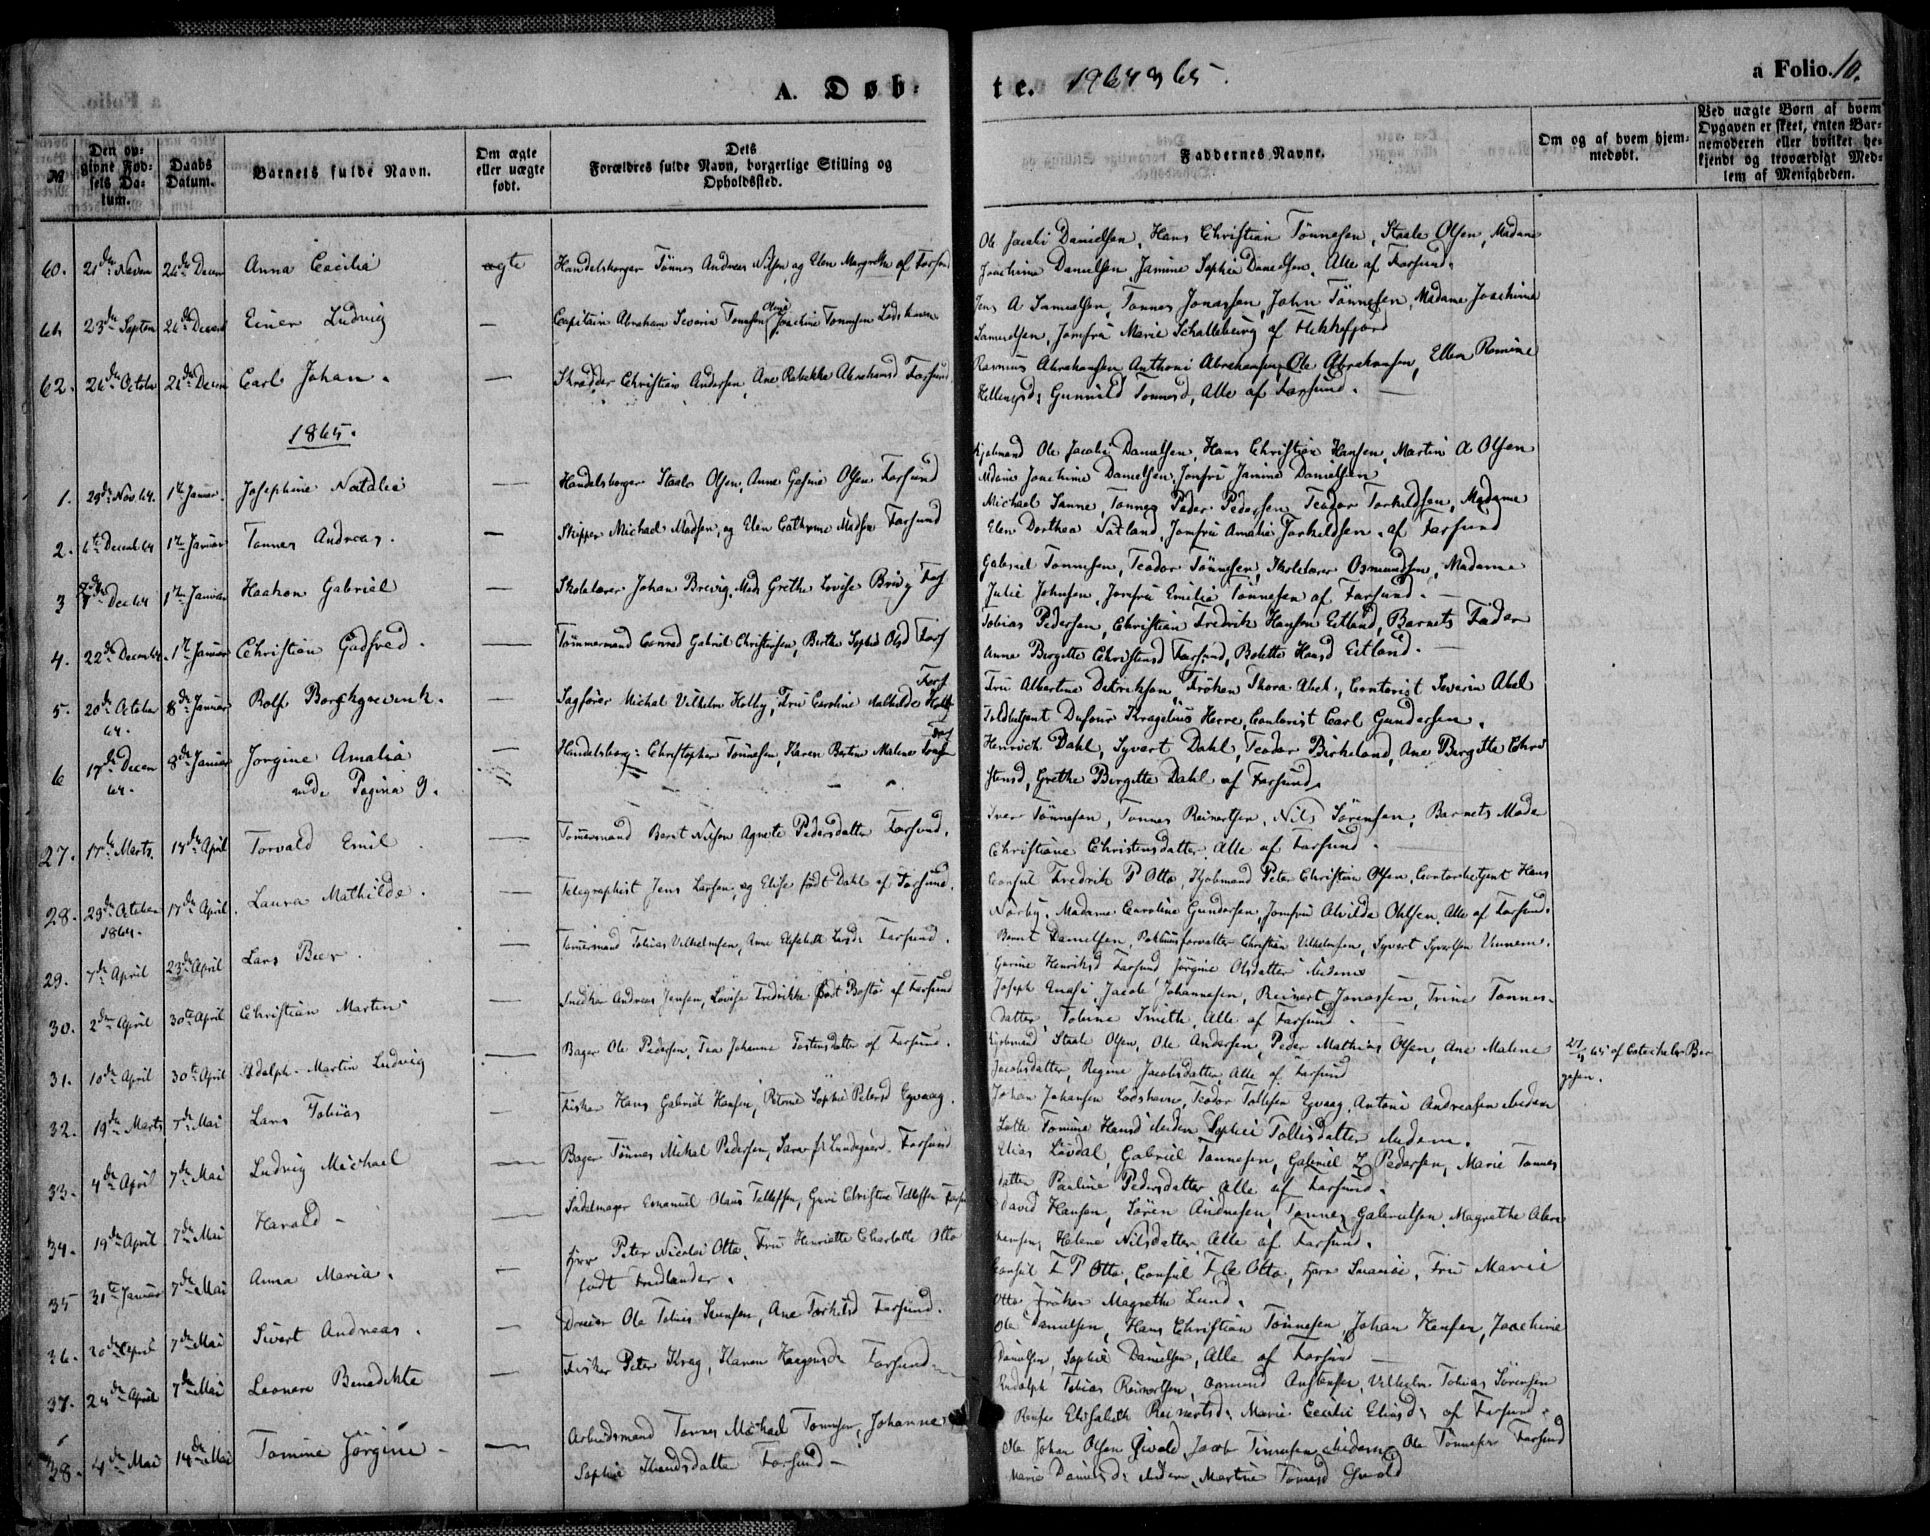 A. Døb-
te. 1864 & 65.
a Folio. 10.
№
Den opgivne Fødsels Datum.
Daabs Datum.
Barnets fulde Navn.
Om ægte eller uægte født.
Dets Forældres fulde Navn, borgerlige Stilling og Opholdssted.
Faddernes Navne.
Om og af hvem hjemmedøbt.
Ved uægte Børn af hvem Opgaven er skeet, enten Barnemoderen eller hvilket bekjendt og troværdigt Medlem af Menigheden.
60. 21de Novem 26de Decem Anna Cecilie ægte Handelsborger Tønnes Andreas Nilsen og Elen Margrethe af Farsund
Ole Jacobi Danielsen, Hans Christian Tönnesen, Staale Olsen, Madame
Joachime Danielsen, Jamine Sophie Danielsen, Alle af Farsund.
61. 23de Septem 26de Decem Einer Ludvig — Capitain Abraham Severin Tönnesen Joachime Tönnesen Lodshavn
Jens A Samuelsen, Tonnes Jonassen, John Tönnesen, Madame Joachime
Samuelsen, Jomfru Marie Schalleburg af Flekkefjord
62. 26de October 26de Decem Carl Johan. — Skrædder Christian Andersen, Ane Rebekke Abrahamsd Farsund
Rasmus Abrahamsen Anthoni Abrahamsen, Ole Abrahamsen, Ellen Romine
Gunnild Tönnesd, Alle af Farsund.
1865.
1. 29de Nov. 64. 1te Januar. Josephine Natalie — Handelsborger Staale Olsen, Anne Gesine Olsen Farsund
Kjøbmand Ole Jacobi Danielsen, Hans Christian Hansen, Martin A Olsen
Mdme Joachime Danielsen, Jomfru Jamine Danielsen
2. 6te Decemb 64 1te Januar Tönnes Andreas. — Skipper Michael Madsen, og Elen Cathrine Madsen Farsund
Michael Sanne, Tonnes Peder Pedersen Teodor Torkildsen, Madame
Elen Dorthea Natland, Jomfru Amalie Torkildsen af Farsund
3 Dec 64 1te Januar Haakon Gabriel — Skolelærer Johan Brevig, Mads Grethe Lovise Brevig Fars
Gabriel Tönnesen, Teodor Tönnesen, Skolelærer Osmundsen, Madame
Julie Johnsen, Jomfru Emilie Tönnesen af Farsund.
4. 22de Decem 64. 1te Januar Christian Gudfred. — Tömmermand Conrad Gabriel Christensen, Berthe Sophie Olsd Fars
Tobias Pedersen, Christian Fredrik Hansen Eitland, Barnets Fader
Anne Birgitte Christensd Farsund, Bolette Hansd Eitland.
5. 20de October 64. 8de Januar Rolf Borchgrevink. — Sagfører Michal Vilhelm Holby, Fru Caroline Mathilde Holby Fars
Fru Albertine Didriksen, Frøken Thora Abel, Contorist Severin Abel
Toldbetjent Dufour Kragelius Herre, Contorist Carl Gundersen.
6 17de Decem 64. 8de Januar Jörgine Amalia — Handelsborg: Christopher Tönnesen, Karen Bertine Malene Fars
vide Pagina 9.
Henrich Dahl, Syvert Dahl, Teodor Birkeland, Ane Bergitte Chri
stensd, Grethe Birgitte Dahl af Farsund.
27. 17de Marts. 17de April Torvald Emil — Tömermand Bernt Nilsen Agnete Pedersdatter Farsund.
Iver Tönnesen, Tonnes Reinertsen, Nils Sörensen, Barnets Mode
Christiane Christensdatter, Alle af Farsund.
28. 29de October 1864. 17de April Laura Mathilde. — Telegraphist Jens Larsen, og Elise født Dahl af Farsund.
Consul Fredrik P Otto, Kjøbmand Peter Christian Olsen, Contorbetjent Hans
Nörby, Madame Caroline Gundersen, Jomfru Alvilde Ohlsen, Alle af Farsund.
29. 7de April 23de April Lars Beer. — Tömermand Tobias Vilhelmsen, Anne Elisabeth Larsd. Farsund.
Bernt Danielsen, Pakhuusforvalter Christian Vilhelmsen, Syvert Syvertsen Vinnem.
Gurine Henriksd Farsund Jörgine Olsdatter ibidem
30. 2den April 30te April Christian Martin — Snedker Andreas Jensen, Lovise Fredrikke født Bostø af Farsund
Joseph Jacob Johannesen, Reinert Jonassen, Trine Tönnes-
datter, Tobine Smith, Alle af Farsund.
31. 10de April 30te April Adolph Martin Ludvig — Bager Ole Pedersen, Tea Johanne Torstensdatter af Farsund.
Kjøbmand Staale Olsen, Ole Andersen, Peder Mathias Olsen, Ane Malene
Jacobsdatter, Regine Jacobsdatter, Alle af Farsund
65 af Catecheler Ber
gesen.
32. 19de Marts 7de Mai Lars Tobias — Fisker Hans Gabriel Hansen, Petrine Sophie Petersd Eyvaag.
Johan Johansen Lodshavn, Teodor Tollefsen Eyvaag, Antoni Andreasen ibidem
Lotte Tomine Hansd ibidem Sophie Tollisdatter ibidem.
33. 4de April 7de Mai Ludvig Michael — Bager Tönnes Mikal Pedersen, Sara f. Lundegaard. Farsund
Elias Lövdal, Gabriel Tönnesen, Gabriel Z Pedersen, Marie Tönnes
datter Pauline Pedersdatter Alle af Farsund.
34. 19de April 7de Mai Harald — Sadelmager Emanuel Claus Tellefsen, Guri Christine Tellefsen Farsund
David Hansen, Sören Andresen, Tonnes Gabrielsen, Magrethe Abra
hamsen, Helene Nilsdatter Alle af Farsund.
35 31te Januar 7de Mai Anna Maria. — Herr Peter Nicolai Otto, Fru Henriette Charlotte Otto
født Fridlænder.
Consul F P Otto, Consul F A Otto, Fru Marie
Otto Frøken Magrethe Lund.
36. 20de April 7de Mai Sivert Andreas. — Dreier Ole Tobias Svensen, Ane Torkildsd Farsund.
Ole Danielsen, Hans Christian Tönnesen, Johan Hansen, Joachime
Danielsen, Sophie Danielsen, Alle af Farsund
37. 24de April 7de Mai Leonora Benedikte — Fisker Peter Krag, Karen Haagensd. Farsund
Rudolph Tobias Reinertsen, Osmund Austensen, Vilhelm Tobias Sörensen
Elisabeth Reinertsd. Marie Cecilie Eliasd. af Farsund.
38. 4de Mai 14de Mai Tomine Jörgine — Arbeidsmand Tönnes Michael Tönnesen, Johanne
Sophie Farsund
Ole Johan Olsen Qvalo, Jacob Tönnesen ibidem Ole Tönnesen Farsund
Marie Danielsd. ibidem, Martine Tönnesd Qvalo